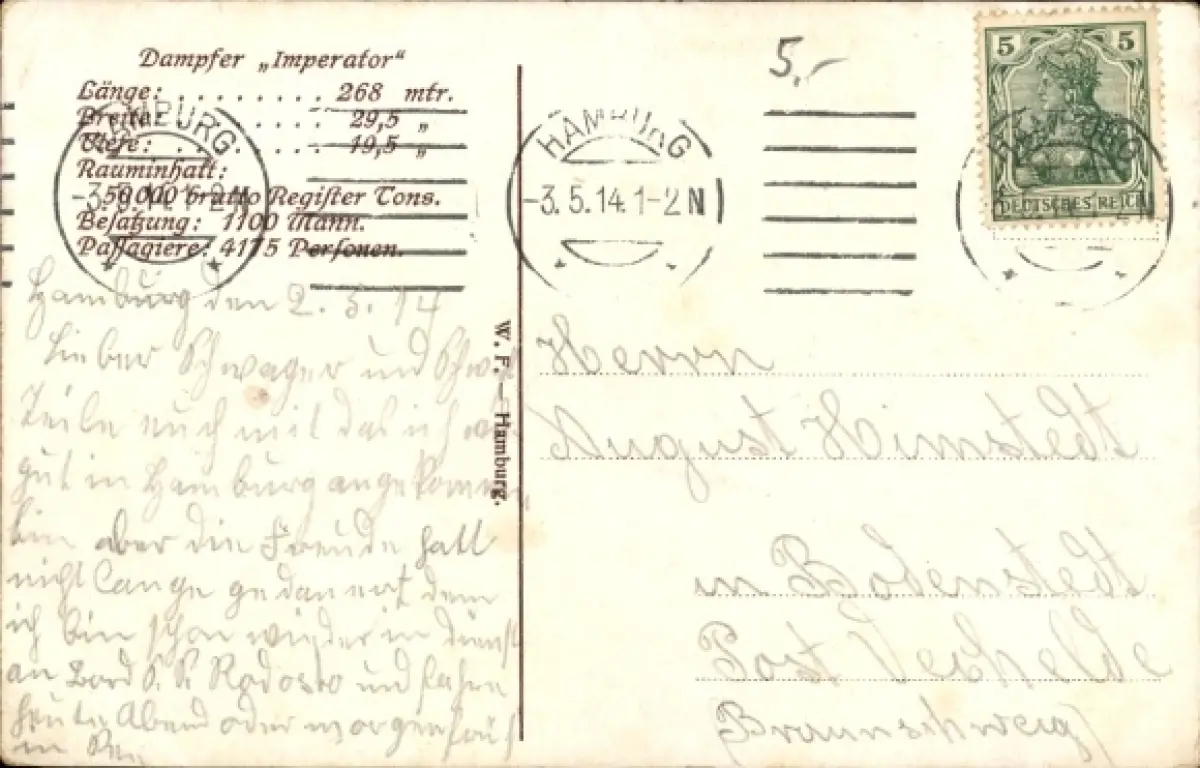 Dampfer „Imperator“
Länge: . . . . . . . . 268 mtr.
Breite: . . . . 29,5 „
Tiefe: . . . . . . 19,5 „
Rauminhalt:
50000 brutto Register Tons.
Besatzung: 1100 Mann.
Passagiere: 4175 Personen.
HAMBURG
HAMBURG
-3.5.14.1-2N
5.-
5 5
DEUTSCHES REICH
W. F. — Hamburg.
Hamburg den 2. 5. 14
Lieber Schwager und
Teile euch mit das ich
gut in Hamburg angekommen
bin aber die Freude hatt
nicht lange gedauert denn
ich bin schon wieder in dienst
an Bord S. S. Rodosto und fahre
heute Abend oder morgen früh
in
Herrn
August Himstedt
in Bodenstedt
Post Vechelde
(Braunschweig)